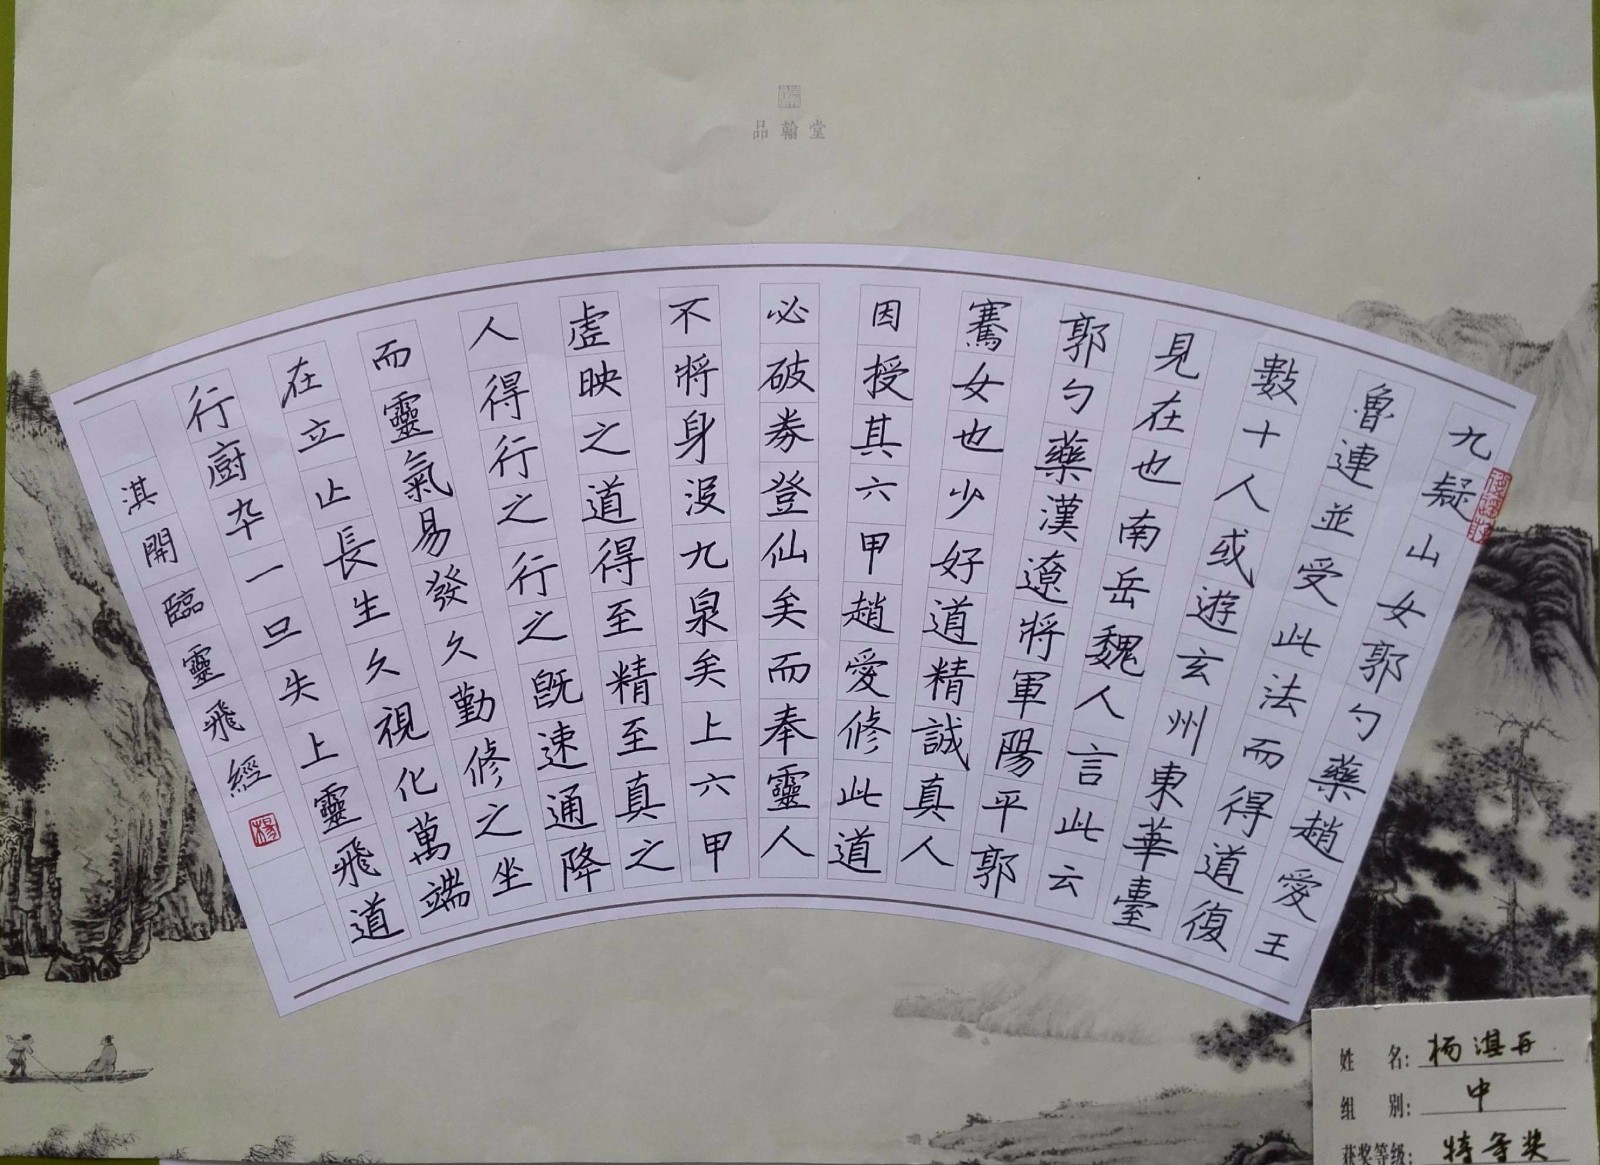 品翰堂
九疑山女郭勺藥趙愛王
魯連並受此法而得道復
數十人或遊玄州東華臺
見在也南岳魏人言此云
郭勺藥漢遼將軍陽平郭
騫女也少好道精誠真人
因授其六甲趙愛修此道
必破券登仙矣而奉靈人
不將身沒九泉矣上六甲
虛映之道得至精至真之
人得行之行之既速通降
而靈氣易發久勤修之坐
在立止長生久視化萬端
行廚卒一旦失上靈飛道
淇開臨靈飛經
楊
姓 名:
组 别: 中
获奖等级: 特等奖